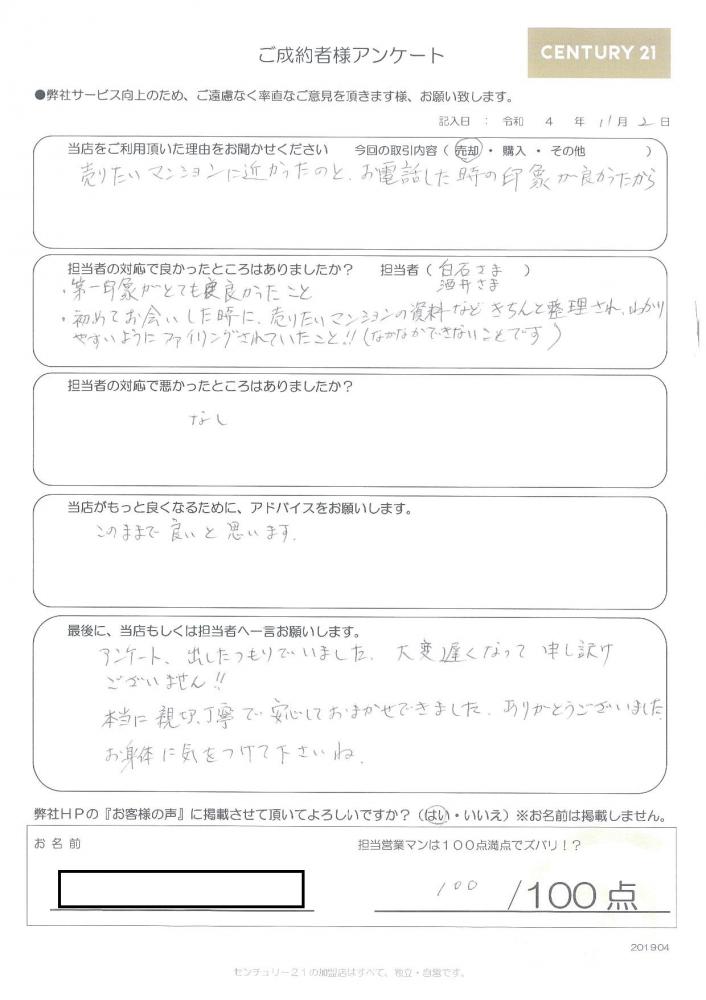 ご成約者様アンケート
CENTURY 21
●弊社サービス向上のため、ご遠慮なく率直なご意見を頂きます様、お願い致します。
記入日 : 令和 4 年 11月 2日
当店をご利用頂いた理由をお聞かせください 今回の取引内容(売却・購入・その他 )
売りたいマンションに近かったのと、お電話した時の印象が良かったから
担当者の対応で良かったところはありましたか? 担当者(白石さま )
酒井さま
・第一印象がとても良かったこと
・初めてお会いした時に、売りたいマンションの資料などきちんと整理され、わかり
やすいようにファイリングされていたこと!!(なかなかできないことです)
担当者の対応で悪かったところはありましたか?
なし
当店がもっと良くなるために、アドバイスをお願いします。
このままで良いと思います.
最後に、当店もしくは担当者へ一言お願いします。
アンケート、出したつもりでいました. 大変遅くなって申し訳
ございません!!
本当に親切、丁寧で安心しておまかせできました. ありがとうございました.
お身体に気をつけて下さいね.
弊社HPの『お客様の声』に掲載させて頂いてよろしいですか?(はい・いいえ)※お名前は掲載しません。
お名前
担当営業マンは100点満点でズバリ!?
100/100点
201904
センチュリー21の加盟店はすべて、独立・自営です。